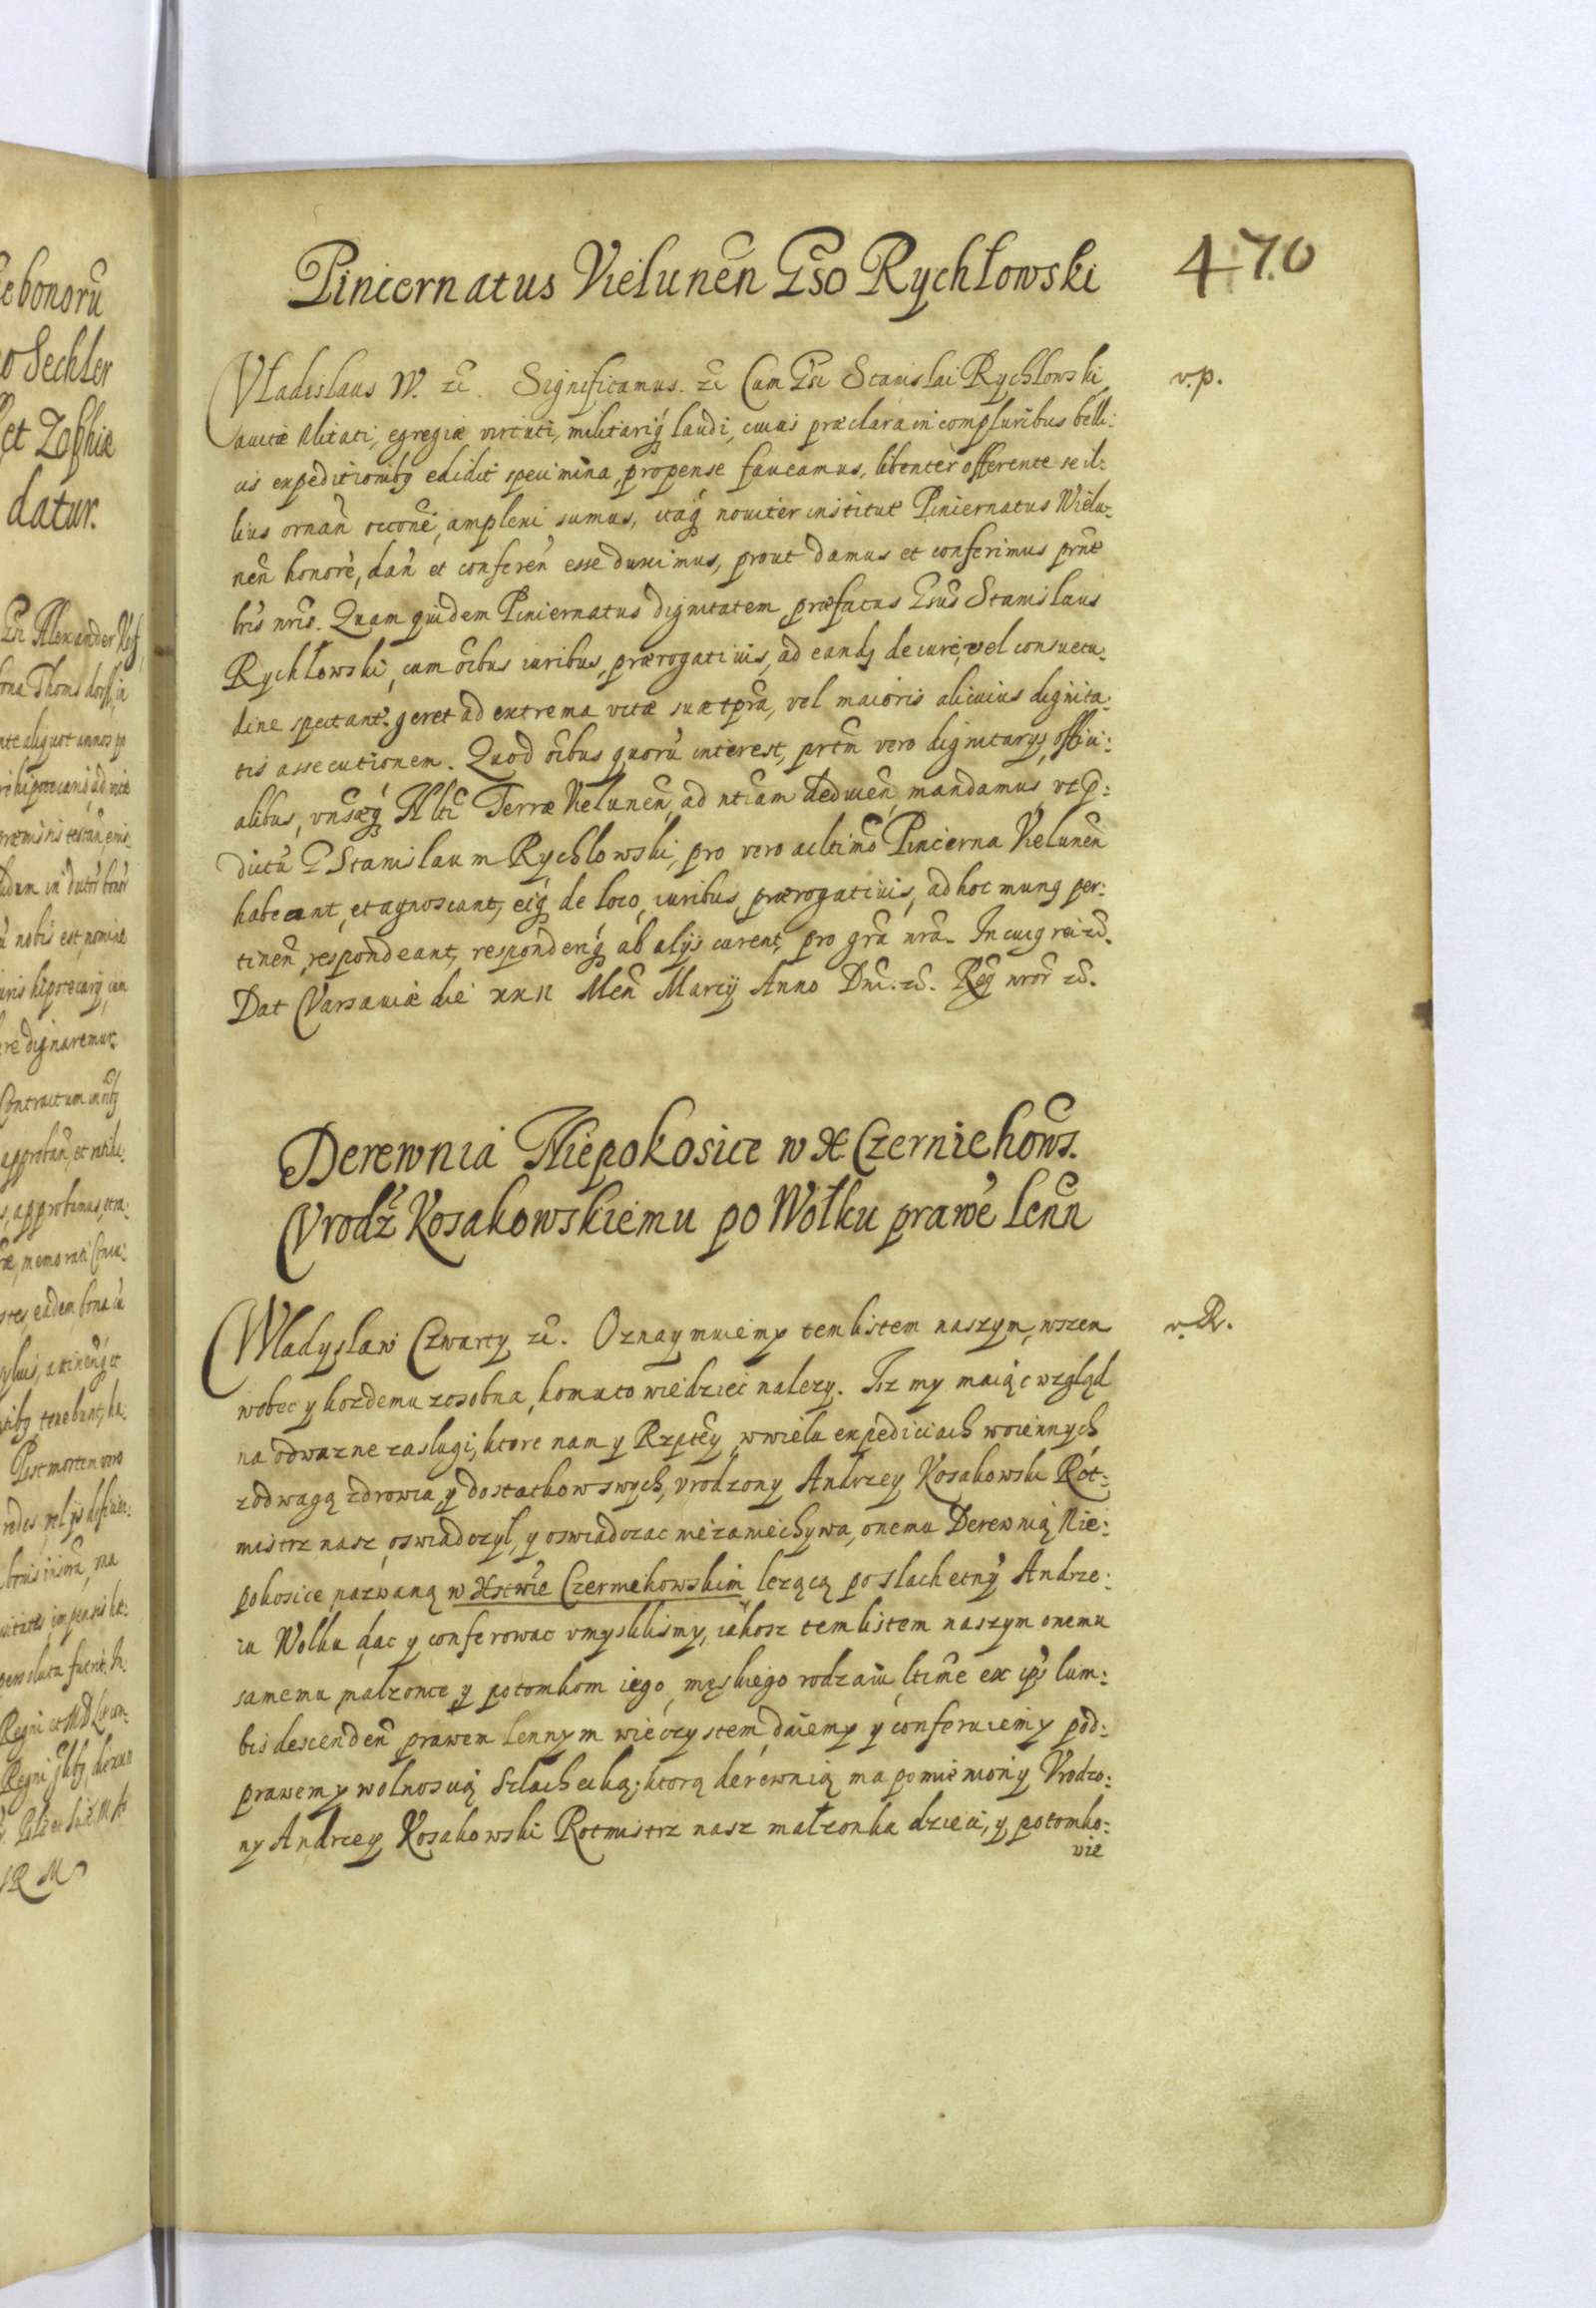 470
Pincernatus Vielunen̄ Gso Rychłowski
v.p.
Vladislaus IV. &c. Significamus. &c Cum Gsi Stanislai Rychlowski
auitæ Nlitati, egregiæ virtuti, militariq́ laudi, cuius præclara in compluribus belli:
cis expeditionibq edidit specimina, propense faueamus, libenter offerente se il:
lius ornan̄ occone, amplexi sumus, itaq́ nouiter institut Pincernatus Wielu:
nen̄ honore, dan̄ et conferen̄ esse duximus, prout damus et conferimus prnt
lris nris. Quam quidem Pincernatus dignitatem præfatus Gsus Stanislaus
Rychłowski, cum oībus iuribus, prærogatiuis, ad eandj de iure, vel consuetu:
dine spectant. geret ad extrema vitæ suæ tpra, vel maioris alicuius dignita:
tis assecutionem. Quod oībus quorū interest, prtm vero dignitarijs, offici:
alibus, vnsæq́ Nlti Terræ Vielunen̄, ad ntiam deducen̄, mandamus, vt p:
dictū G Stanislaum Rychlowski, pro vero ac ltimo Pincerna Vielunen̄
habeant, et agnoscant, eiq́ de loco, iuribus, prærogatiuis, ad hoc munq per:
tinen̄ respondeant, responderiq́ ab alijs curent, pro gra nra. In cuiq rei &c.
Dat Varsauiæ die xxii Men̄ Marcij Anno Dni. &c. Reg nror &c.
Derewnia Niepokosice w X Czerniehows.
Vrodz Kosakowskiemu po Wołku prawe lenn
v.R.
Władysław Czwarty &c. Oznaymuiemy tem listem naszym, wszem
wobec y kozdemu zosobna, komu to wiedziec nalezy. Isz my maiąc wzgląd
na odwazne zaslugi, ktore nam y Rzptey, w wielu expediciach woiennych
z odwagą zdrowia, y dostatkow swych, vrodzony Andrzey Kosakowski Rot:
mistrz nasz oswiadczył, y oswiadczac nie zaniechywa, onemu Derewnią Nie:
pokosice nazwaną w Xstwie Czerniekowskim lezącą po slachetny Andrze:
iu Wolku, dac y conferowac vmyslilismy, iakosz tem listem naszym onemu
samemu, malzonce, y potomkom iego, męskiego rodzaiu, ltime ex ips lum:
bis descenden̄ prawem lennym wieczystem, daiemy y conferuiemy pod:
prawem y wolnoscią Szlachecką; ktorą derewnią ma pomieniony Vrodzo:
ny Andrzey Kosakowski Rotmistrz nasz małzonka dzieci, y potomko:
wie